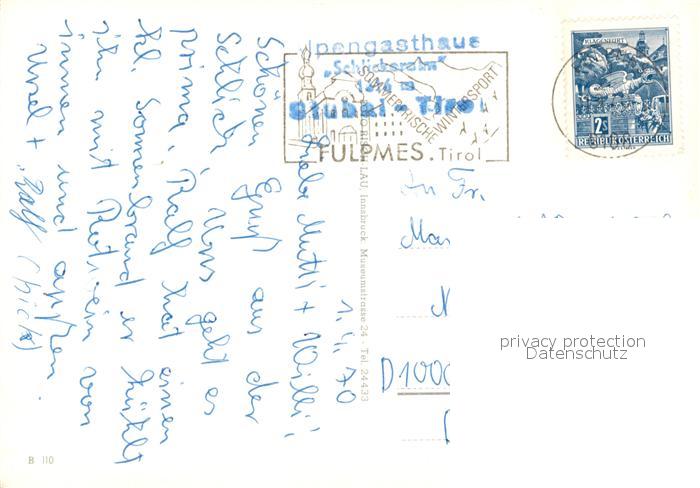 Alpengasthaus
"Schlickeralm"
Stubai - Tirol
SOMMERFRISCHE WINTERSPORT
FULPMES . Tirol
KLAGENFURT
2S
REPUBLIK ÖSTERREICH
1.4.70
Liebe Mutti + Willi!
Schönen Gruß aus der
Schlick. Uns geht es
prima, Ralf hat einen
kl. Sonnenbrand er kühlt
ihn mit Rotwein von
innen und außen.
Ursel + Ralf
An Fr.
Mar
D 1000
LAU, Innsbruck Museumstrasse 24 · Tel. 24433
B 110
privacy protection
Datenschutz